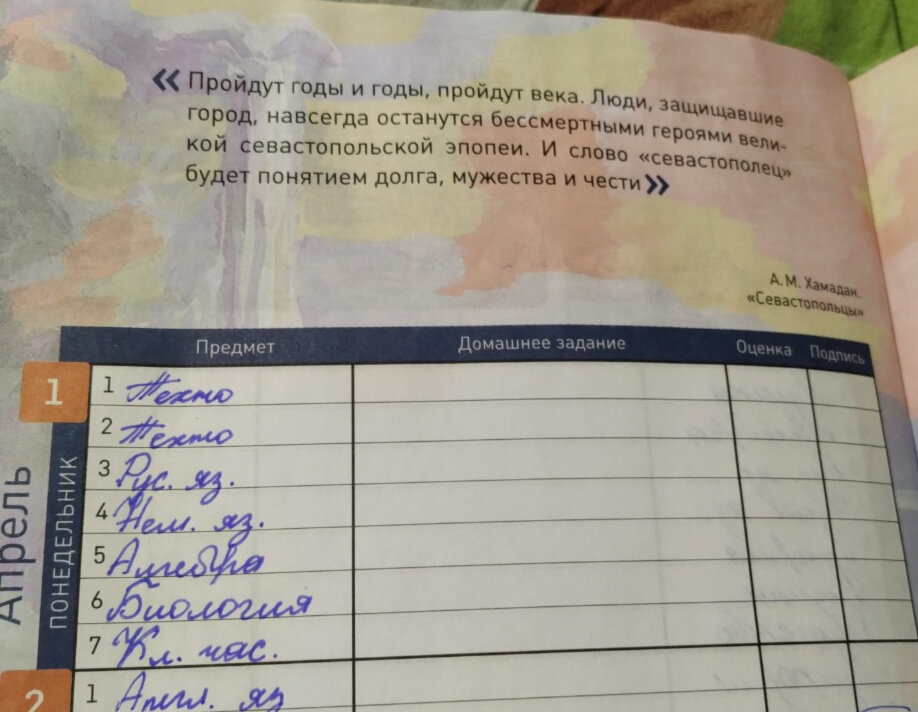 « Пройдут годы и годы, пройдут века. Люди, защищавшие
город, навсегда останутся бессмертными героями вели-
кой севастопольской эпопеи. И слово «севастополец»
будет понятием долга, мужества и чести »
А. М. Хамадан.
«Севастопольцы»
Предмет Домашнее задание Оценка Подпись
Апрель
1
ПОНЕДЕЛЬНИК
1 Техно
2 Техно
3 Рус. яз.
4 Нем. яз.
5 Алгебра
6 Биология
7 Кл. час.
2
1 Англ. яз